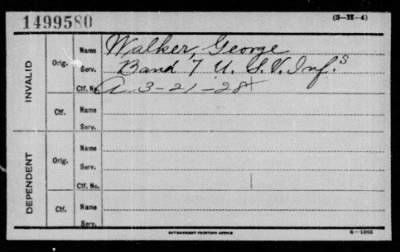 1499580 (3-H-4)
INVALID
Orig. Name Walker, George
Serv. Band 7 U. S. V. Inf.s
Ctf. No. A 3-21-28
Ctf. Name
Serv.
DEPENDENT
Orig. Name
Serv.
Ctf. No.
Ctf. Name
Serv.
GOVERNMENT PRINTING OFFICE